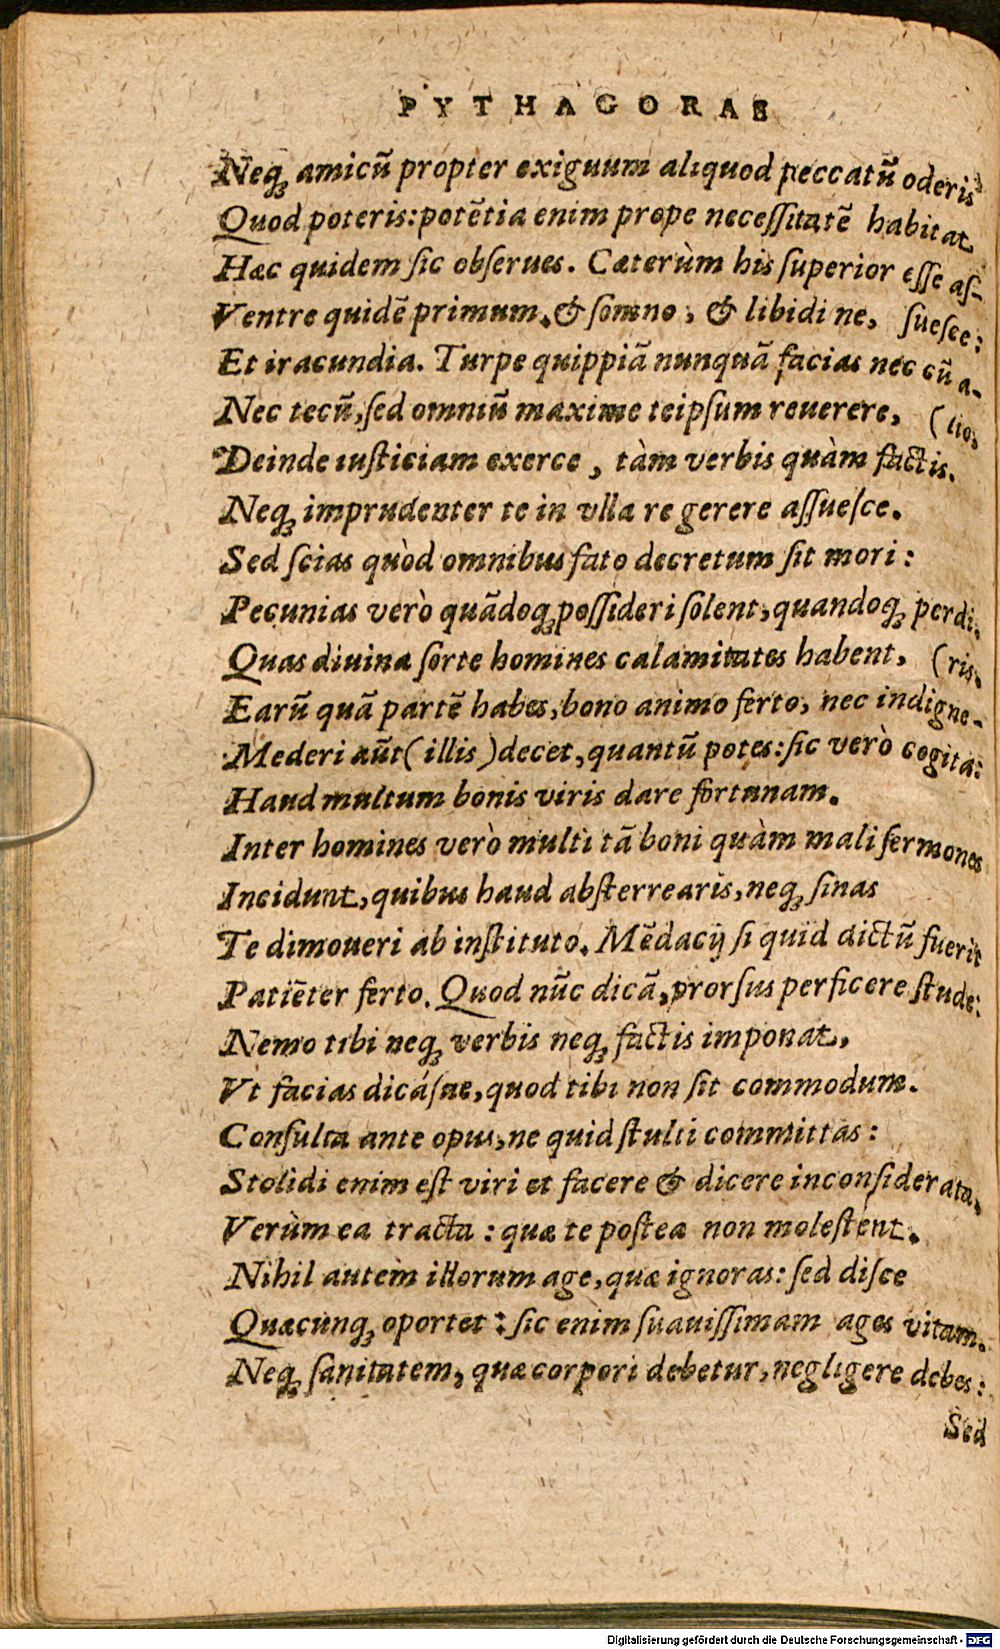 PYTHAGORAE
Neqꝫ amicũ propter exiguum aliquod peccatũ oderis
Quod poteris: potẽtia enim prope neceſſitatẽ habitat
Hæc quidem ſic obſerues. Cæterùm his ſuperior eſſe aſ-
Ventre quidẽ primum, & ſomno, & libidine, ſueſce:
Et iracundia. Turpe quippiã nunquã facias nec cũ a-
Nec tecũ, ſed omniũ maxime teipſum reuerere, (lio,
Deinde iuſticiam exerce, tàm verbis quàm factis.
Neqꝫ imprudenter te in vlla re gerere aſſueſce.
Sed ſcias quòd omnibus fato decretum ſit mori:
Pecunias verò quãdoqꝫ poſſideri ſolent, quandoqꝫ perdi.
Quas diuina ſorte homines calamitates habent, (ris.
Earũ quã partẽ habes, bono animo ferto, nec indigne-
Mederi aũt (illis) decet, quantũ potes: ſic verò cogita:
Haud multum bonis viris dare fortunam.
Inter homines verò multi tã boni quàm mali ſermones
Incidunt, quibus haud abſterrearis, neqꝫ ſinas
Te dimoueri ab inſtituto. Mẽdacij ſi quid dictũ fuerit
Patiẽter ferto. Quod nũc dicã, prorſus perficere ſtude:
Nemo tibi neqꝫ verbis neqꝫ factis imponat,
Vt facias dicáſne, quod tibi non ſit commodum.
Conſulta ante opus, ne quid ſtulti committas:
Stolidi enim eſt viri et facere & dicere inconſiderata,
Verùm ea tracta: quæ te poſtea non moleſtent.
Nihil autem illorum age, quæ ignoras: ſed diſce
Quæcunqꝫ oportet: ſic enim ſuauiſſimam ages vitam.
Neqꝫ ſanitatem, quæ corpori debetur, negligere debes:
Sed
Digitalisierung gefördert durch die Deutsche Forschungsgemeinschaft - DFG